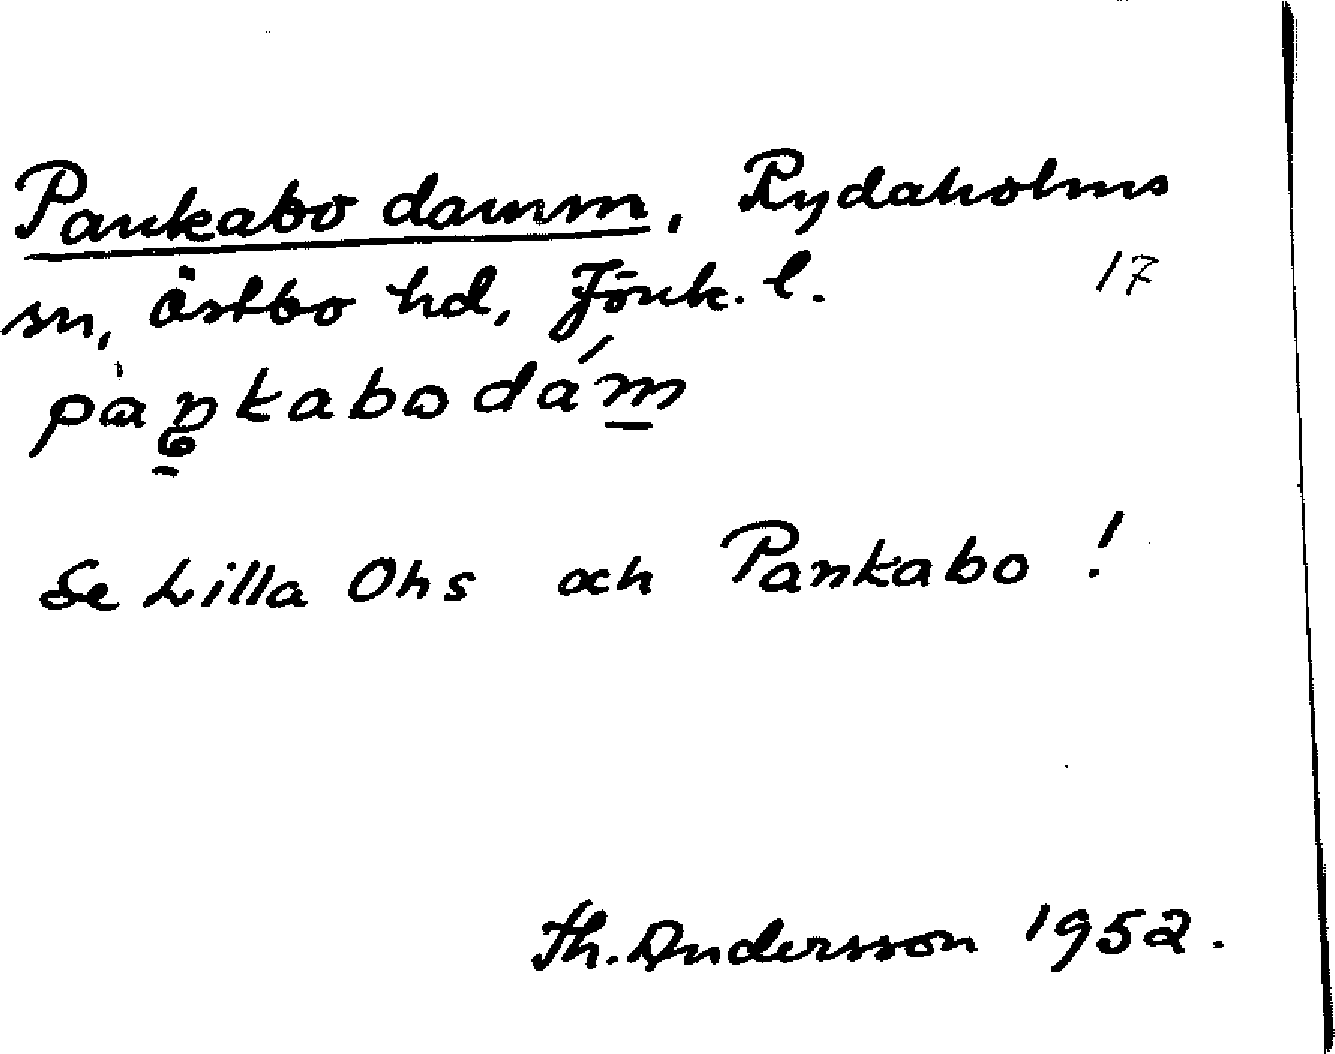 Pankabo damm, Rydaholms
sn, Östbo hd, Jönk. l. 17
pàŋkabodám
Se Lilla Ohs och Pankabo !
Th. Andersson 1952.